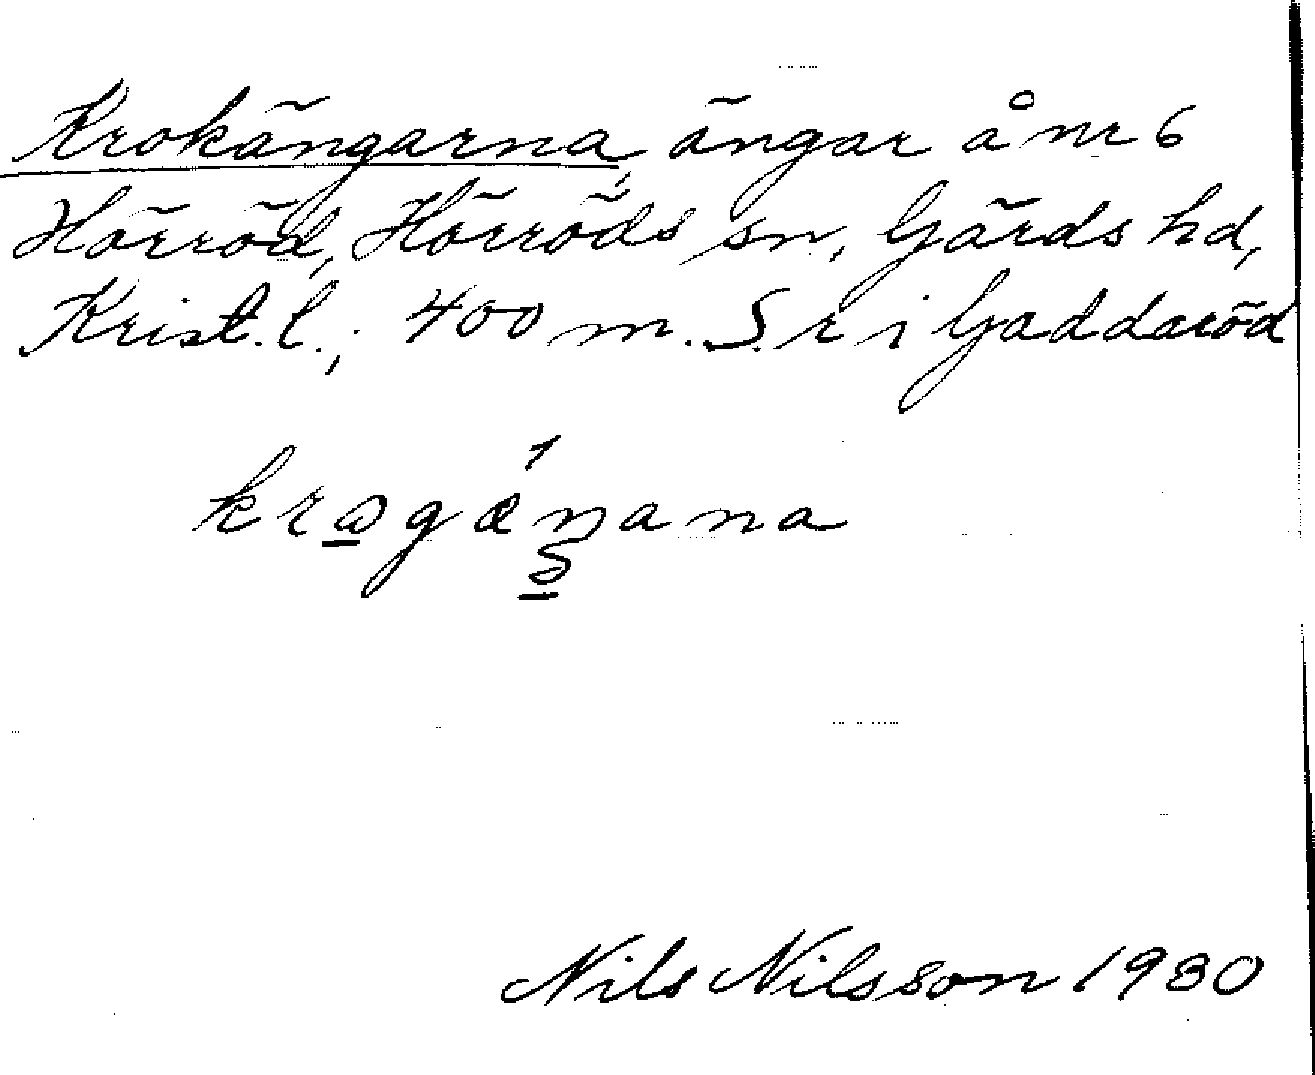 Krokängarna, ängar å nr 6
Hörröd, Hörröds sn, Gärds hd,
Krist. l.; 400 m. S. r i Gaddaröd
Nils Nilsson 1930